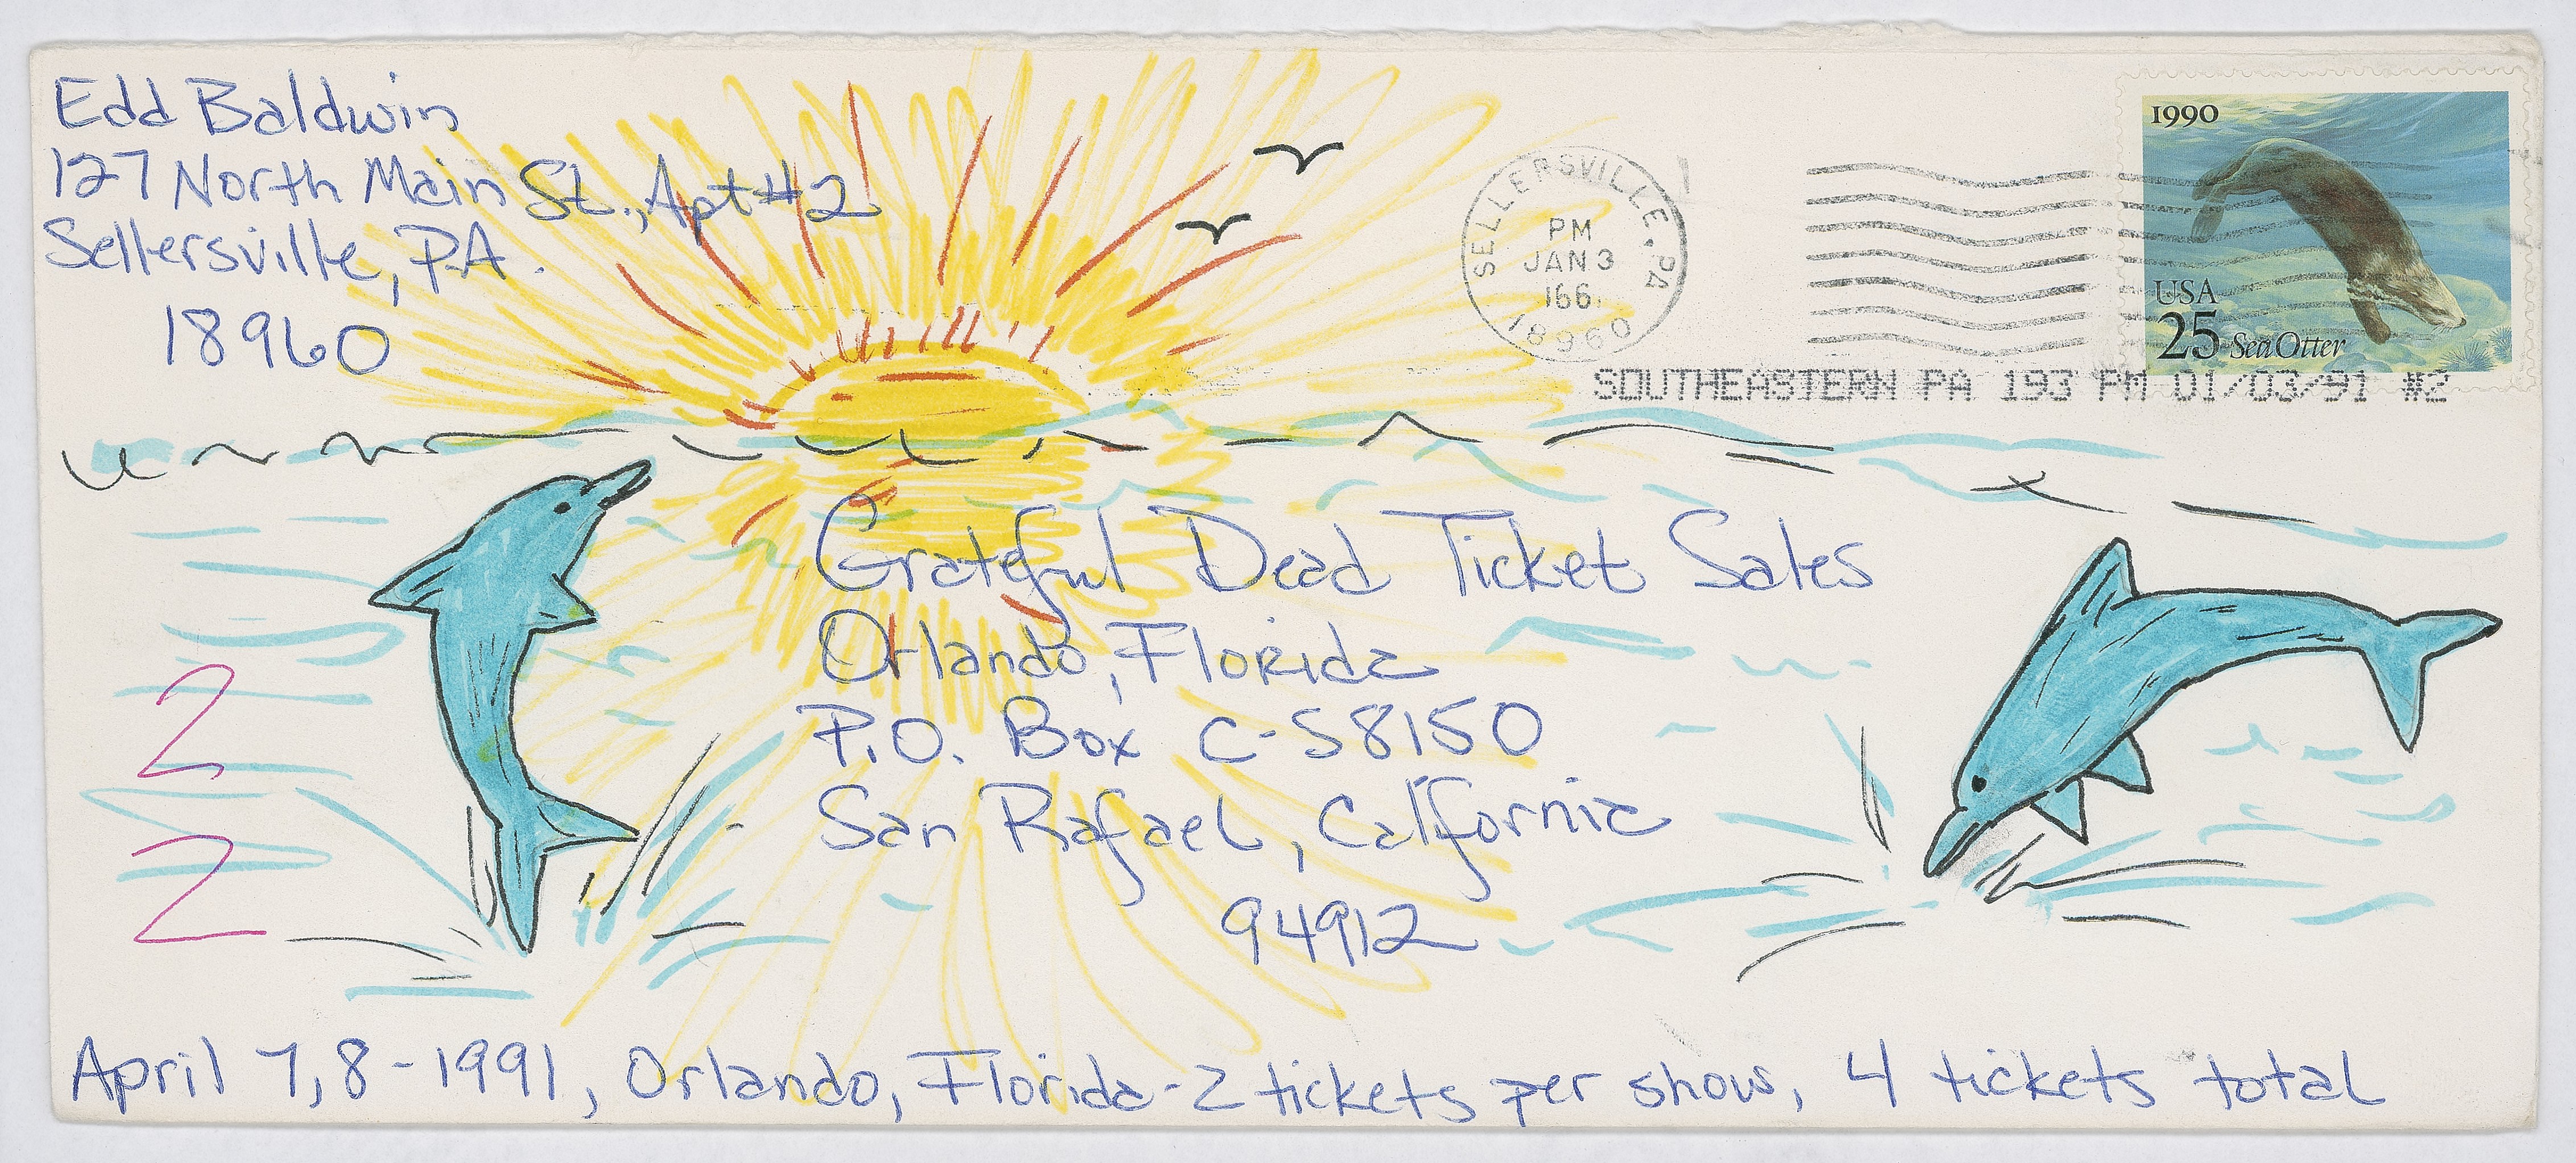 Edd Baldwin
127 North Main St., Apt #2
Sellersville, P.A.
18960
SELLERSVILLE, PA
PM
JAN 3
166
18960
1990
USA
25 Sea Otter
SOUTHEASTERN PA 193 PM 01/03/91 #2
Grateful Dead Ticket Sales
Orlando, Florida
P.O. Box C-S8150
San Rafael, California
94912
2
2
April 7,8-1991, Orlando, Florida-2 tickets per show, 4 tickets total